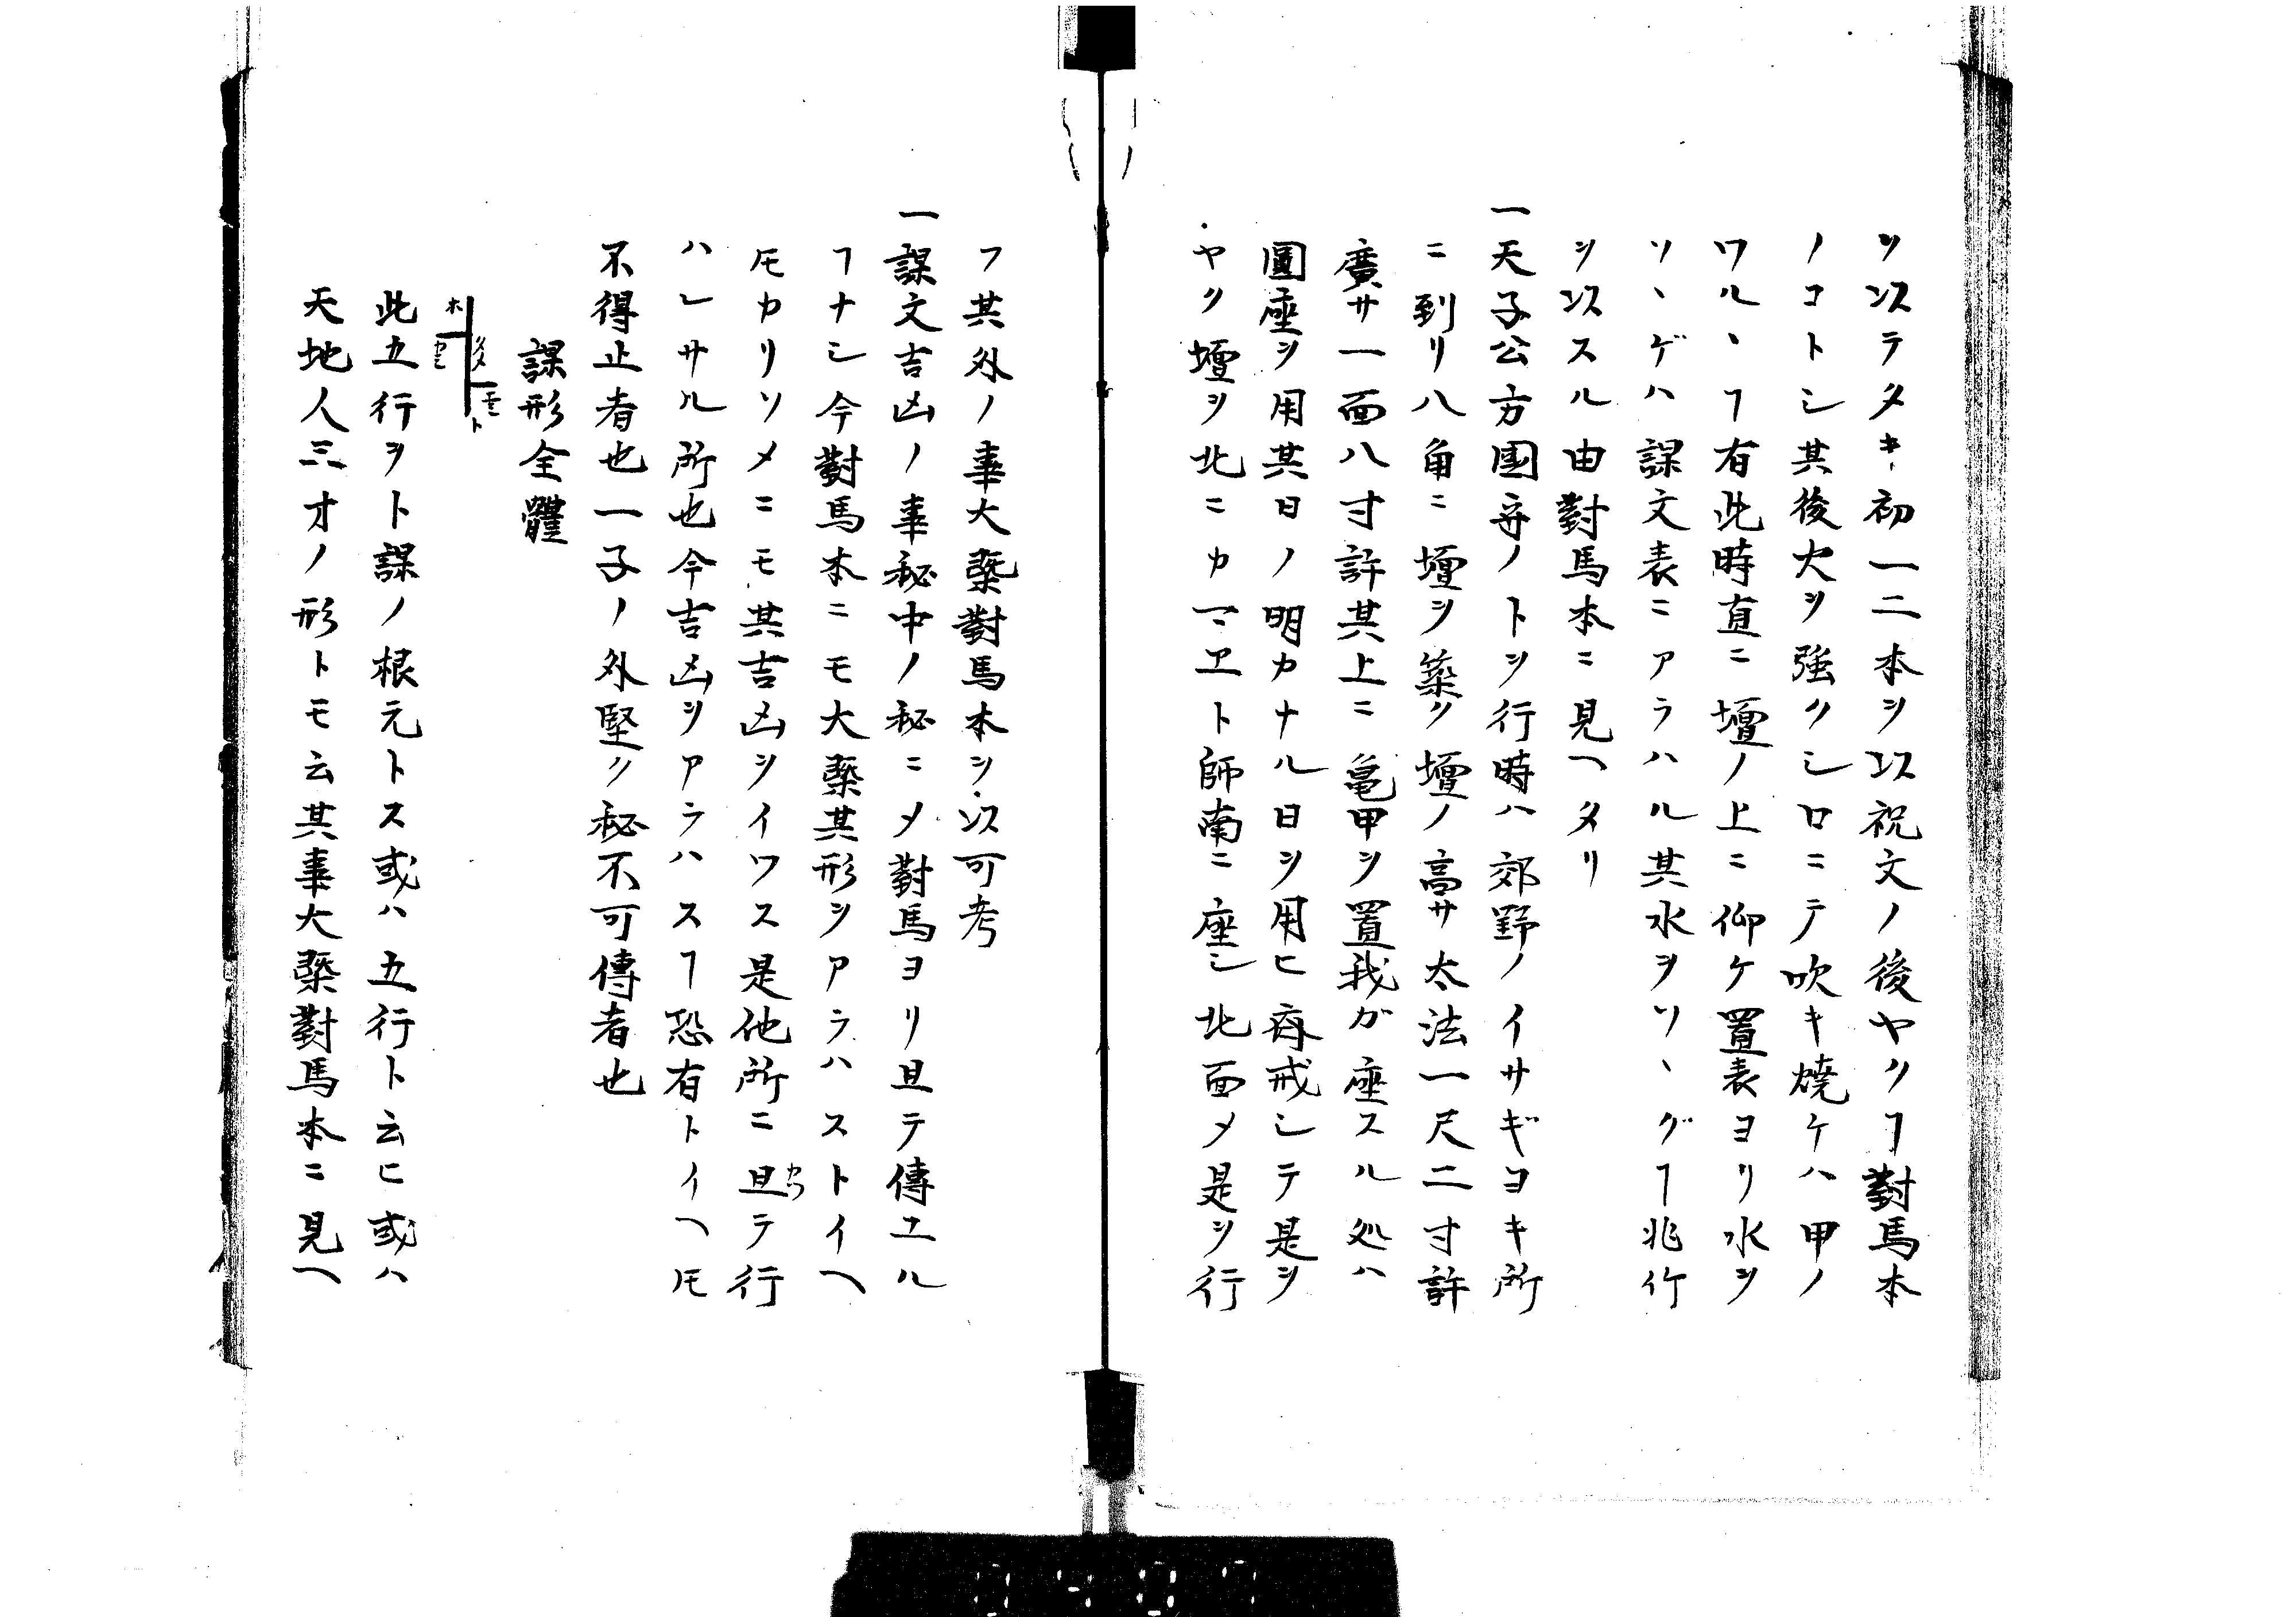 ヲ以テタキ初一二本ヲ以祝文ノ後ヤクヿ對馬本
ノコトシ其後火ヲ強クシロニテ吹キ焼ケハ甲ノ
ワルヽヿ有此時直ニ壇ノ上ニ仰ケ置表ヨリ水ヲ
ソヽゲハ諜文表ニアラハル其水ヲソヽグヿ兆竹
ヲ以スル由對馬本ニ見ヘタリ
一天子公方國卒ノトヲ行時ハ郊野ノイサギヨキ所
ニ到リ八角ニ壇ヲ築ク壇ノ高サ太法一尺二寸許
廣サ一面八寸許其上ニ亀甲ヲ置我ガ座スル処ハ
圓座ヲ用其日ノ明カナル日ヲ用ヒ斎戒シテ是ヲ
ヤク壇ヲ北ニカマヱト師南ニ座シ北面メ是ヲ行
フ其外ノ事大槩對馬本ヲ以可考
一諜文吉凶ノ事秘中ノ秘ニメ對馬ヨリ且テ傳ユル
ヿナシ今對馬本ニモ大槩其形ヲアラハストイヘ
𪜈カリソメニモ其吉凶ヲイワス是他所ニ且テ行
カツ
ハレサル所也今吉凶ヲアラハスヿ恐有トイヘ𪜈
不得止者也一子ノ外堅ク秘不可傳者也
諜形全體
ホ
ト
此五行ヲト諜ノ根元トス或ハ五行ト云ヒ或ハ
天地人三才ノ形トモ云其事大槩對馬本ニ見ヘ